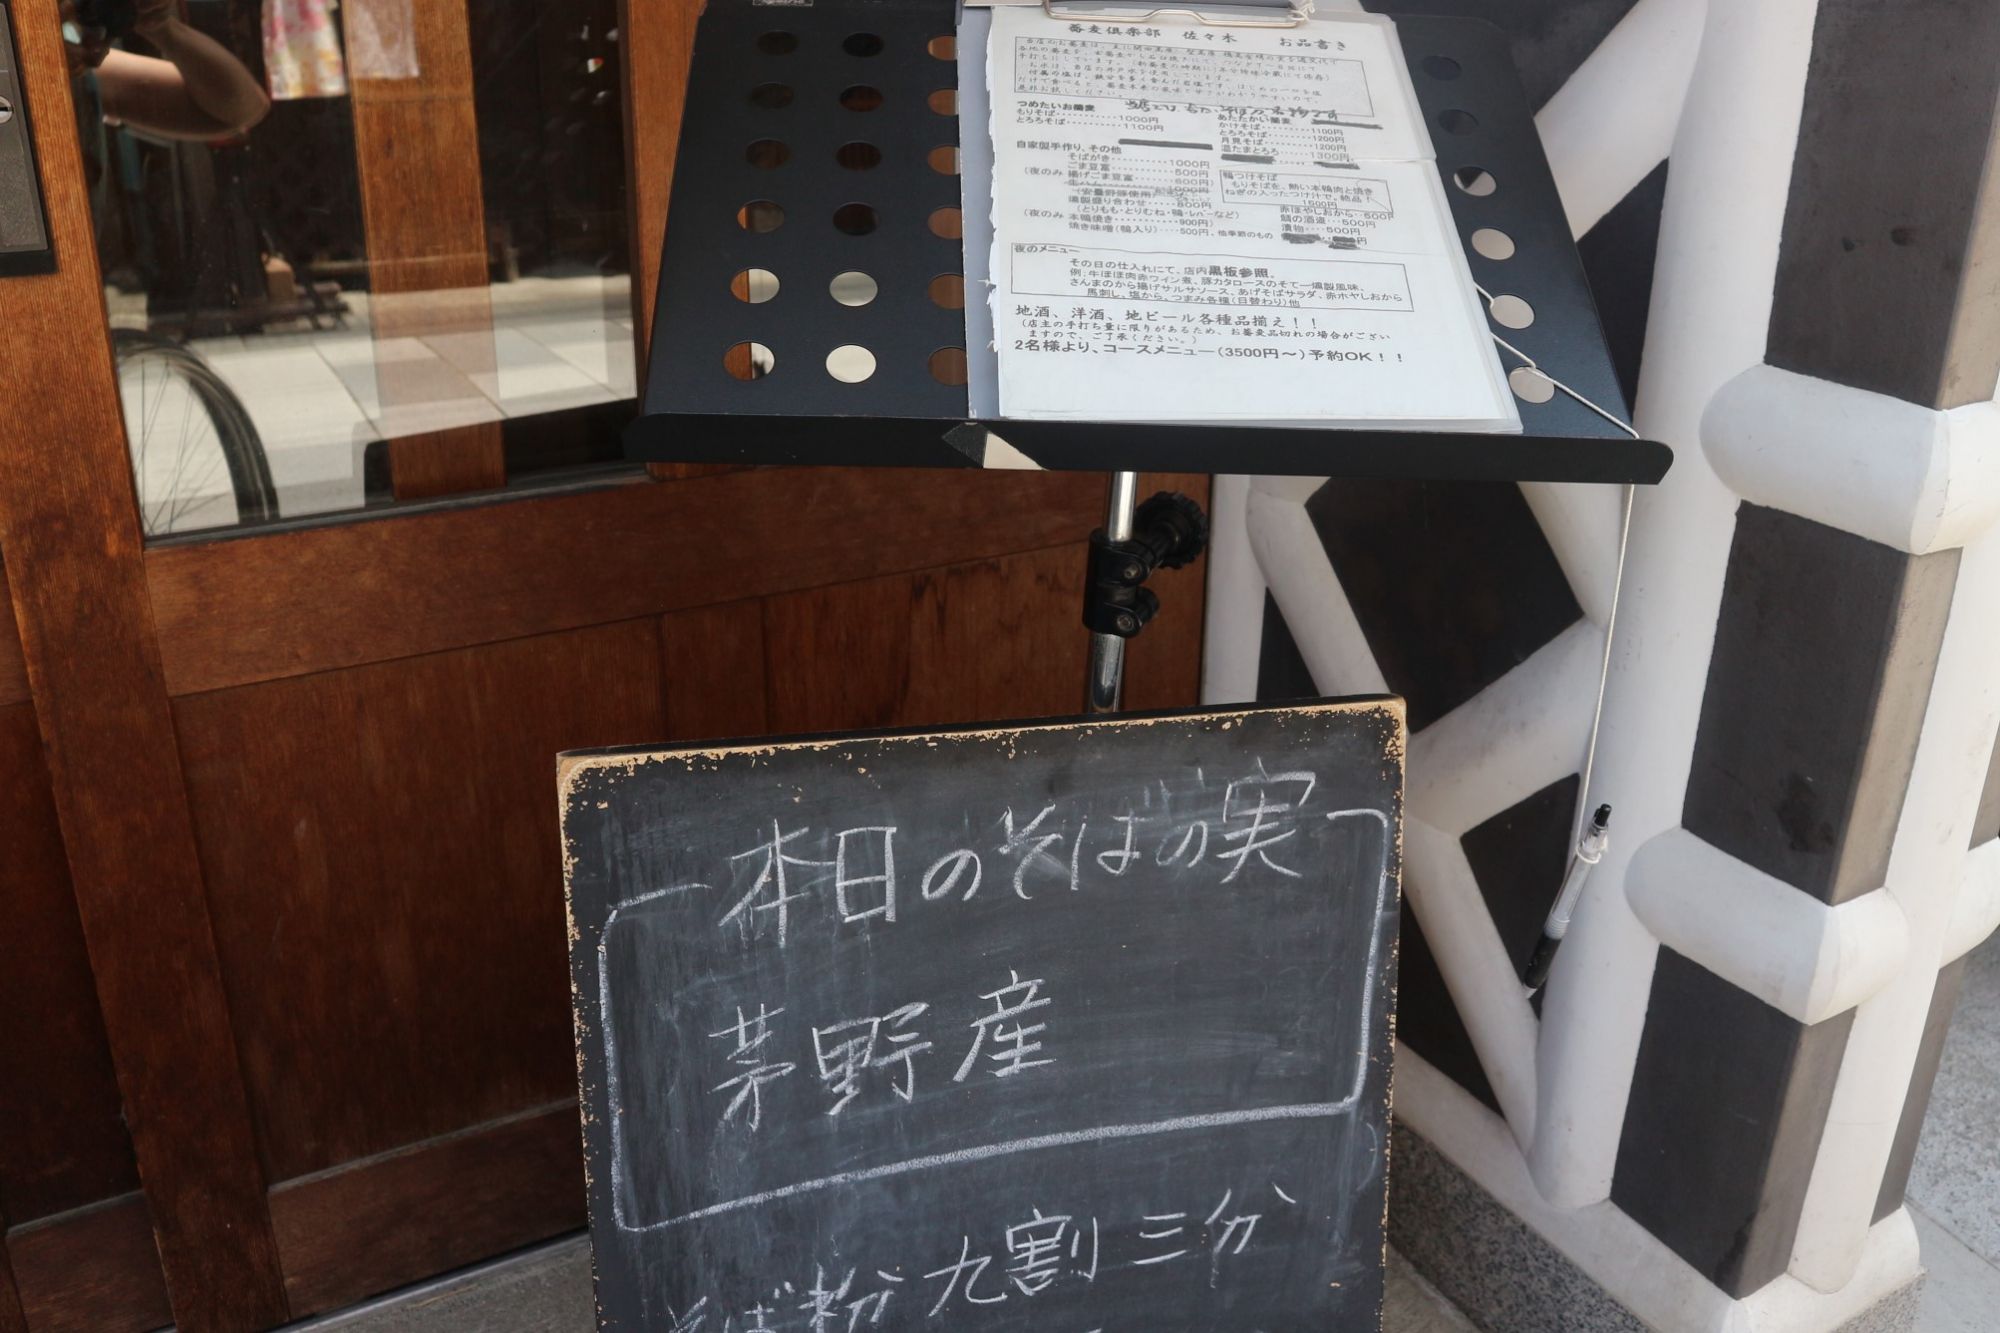 蕎麦倶楽部 佐々木 お品書き
つめたいお蕎麦
もりそば 1000円
とろろそば 1100円
あたたかい蕎麦
かけそば 1100円
とろろそば 1200円
月見そば 1200円
温たまとろろ 1300円
自家製手作り、その他
そばがき 1000円
ごま豆富 500円
(夜のみ 揚げごま豆富 600円)
(安曇野豚使用)
燻製盛り合わせ 800円
(とりもも・とりむね・鴨・レバーなど)
(夜のみ 本鴨焼き 900円)
焼き味噌(鴨入り)‥‥500円、他季節のもの
鴨つけそば
もりそばを、熱い本鴨肉と焼き
ねぎの入ったつけ汁で。絶品!
1600円
赤ほやしおから‥500円
鯛の酒盗‥‥500円
漬物‥‥500円
夜のメニュー
その日の仕入れにて、店内黒板参照。
例:牛ほほ肉赤ワイン煮、豚カタロースのそて一燻製風味、
さんまのから揚げサルサソース、あげそばサラダ、赤ホヤしおから
馬刺し、塩から、つまみ各種(日替わり)他
地酒、洋酒、地ビール各種品揃え!!
(店主の手打ち量に限りがあるため、お蕎麦品切れの場合がござい
ますので、ご了承ください。)
2名様より、コースメニュー(3500円~)予約OK!!
本日のそばの実
茅野産
そば粉九割三分